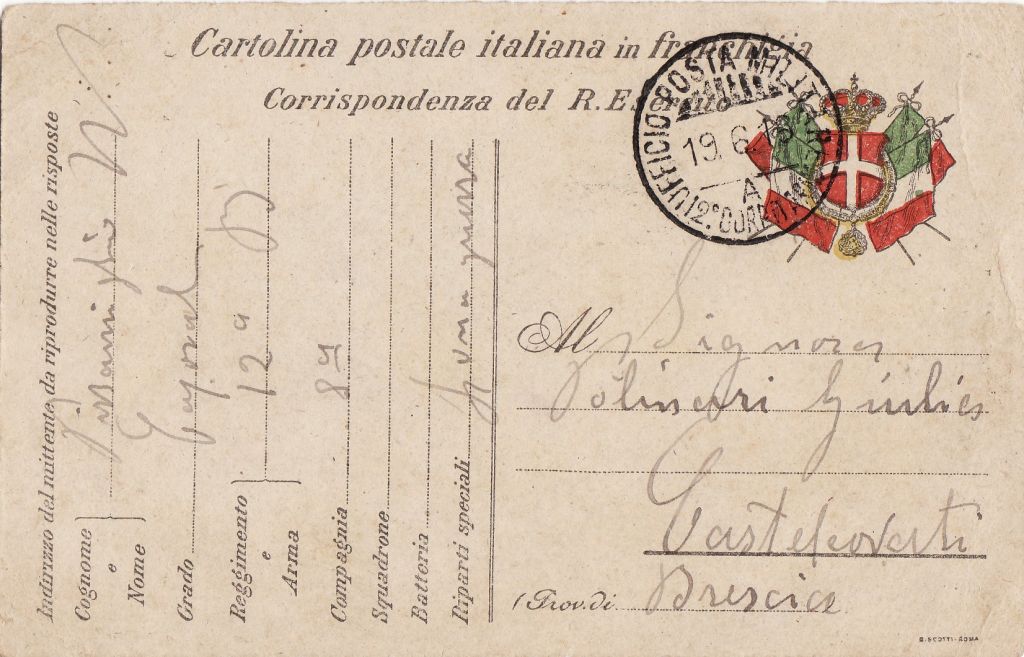 Cartolina postale italiana in franchigia
Corrispondenza del R. Esercito
UFFICIO POSTA MILITARE
19. 6. 18
A
(12° CORPO
Al Signor
Giulio
Castelcovati
(Prov. di Brescia
Indirizzo del mittente da riprodurre nelle risposte
Cognome
e
Nome
Grado
Reggimento 12ª
e
Arma
Compagnia
Squadrone
Batteria
Riparti speciali Zona guerra